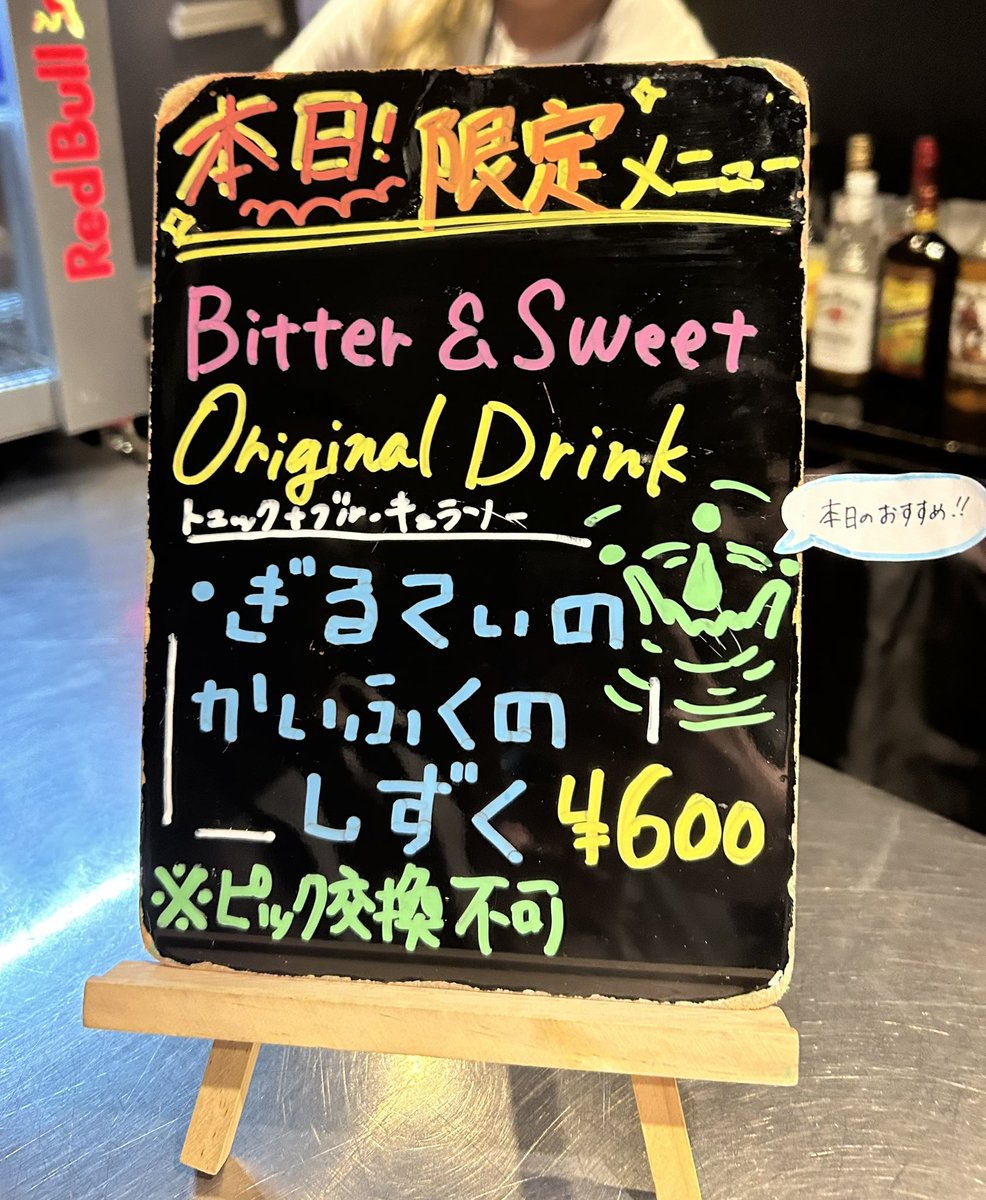 本日! 限定メニュー
Bitter & Sweet
Original Drink
トニック+ブルーキュラソー
・ぎるてぃの
かいふくの
しずく ¥600
※ピック交換不可
本日のおすすめ!!
Red Bull